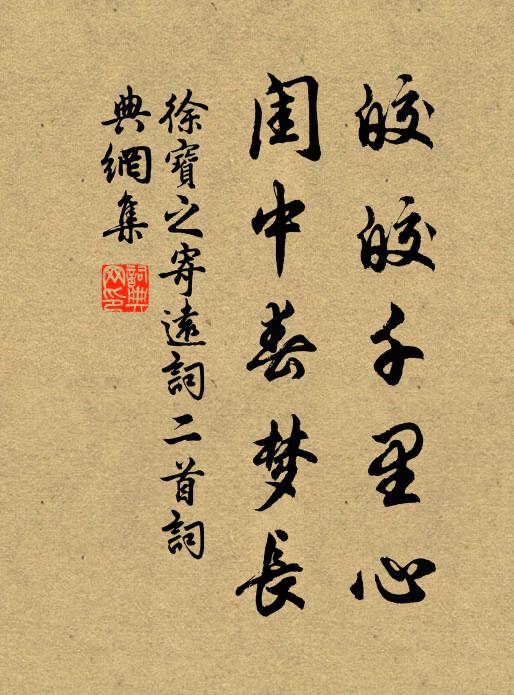 皎皎千里心
闺中春梦長
徐寶之寄遠詞二首詞
典網集
詞典网印